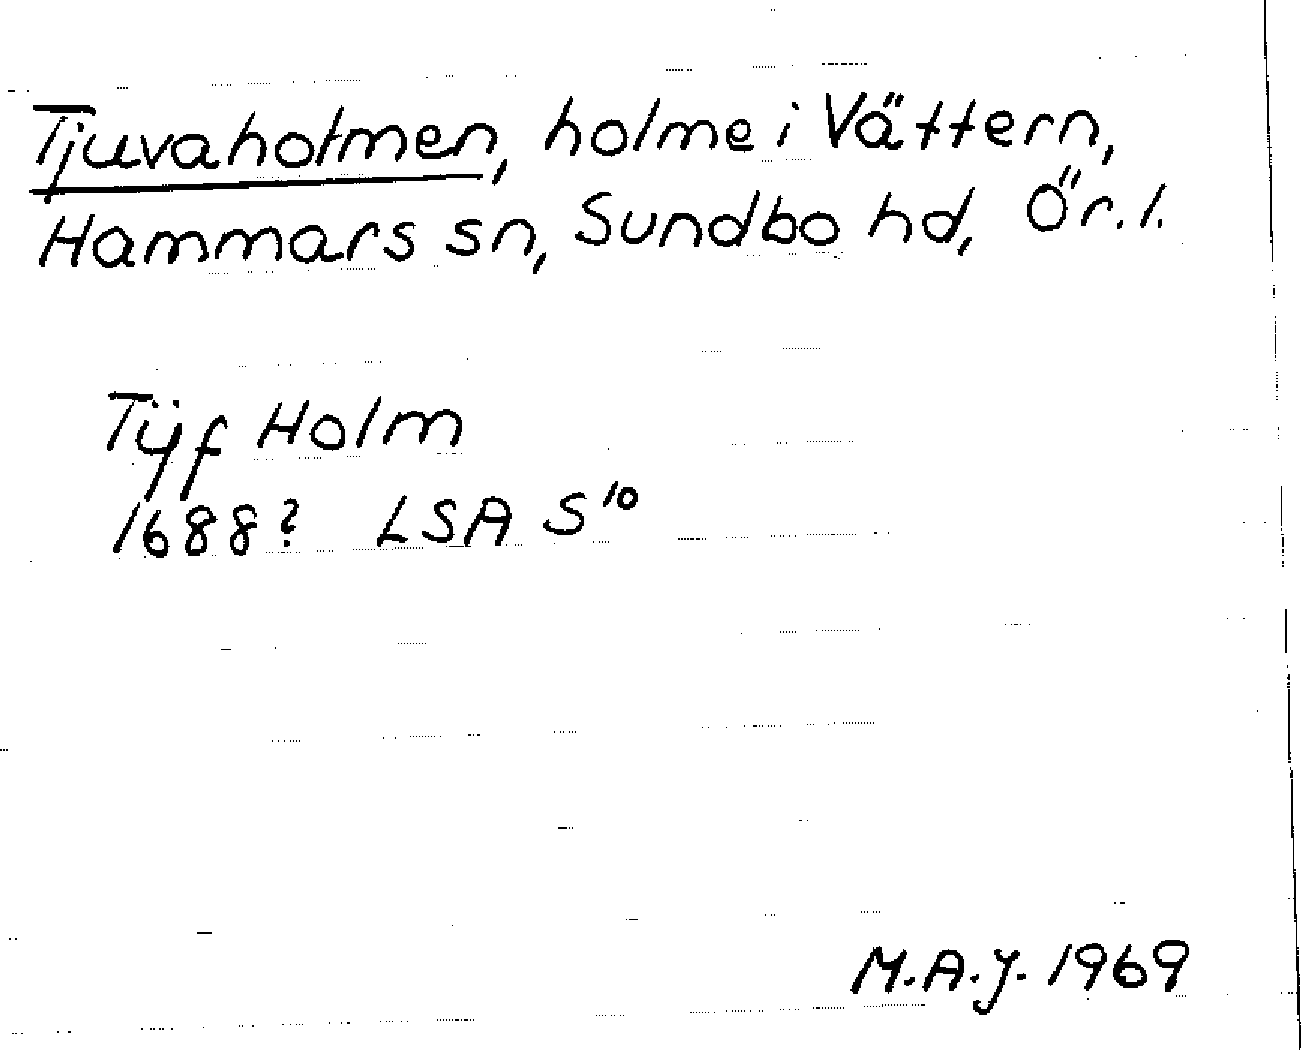 Tjuvaholmen, holme i Vättern,
Hammars sn, Sundbo hd, Ör. l.
Tÿf Holm
1688? LSA S¹⁰
M.A.J. 1969